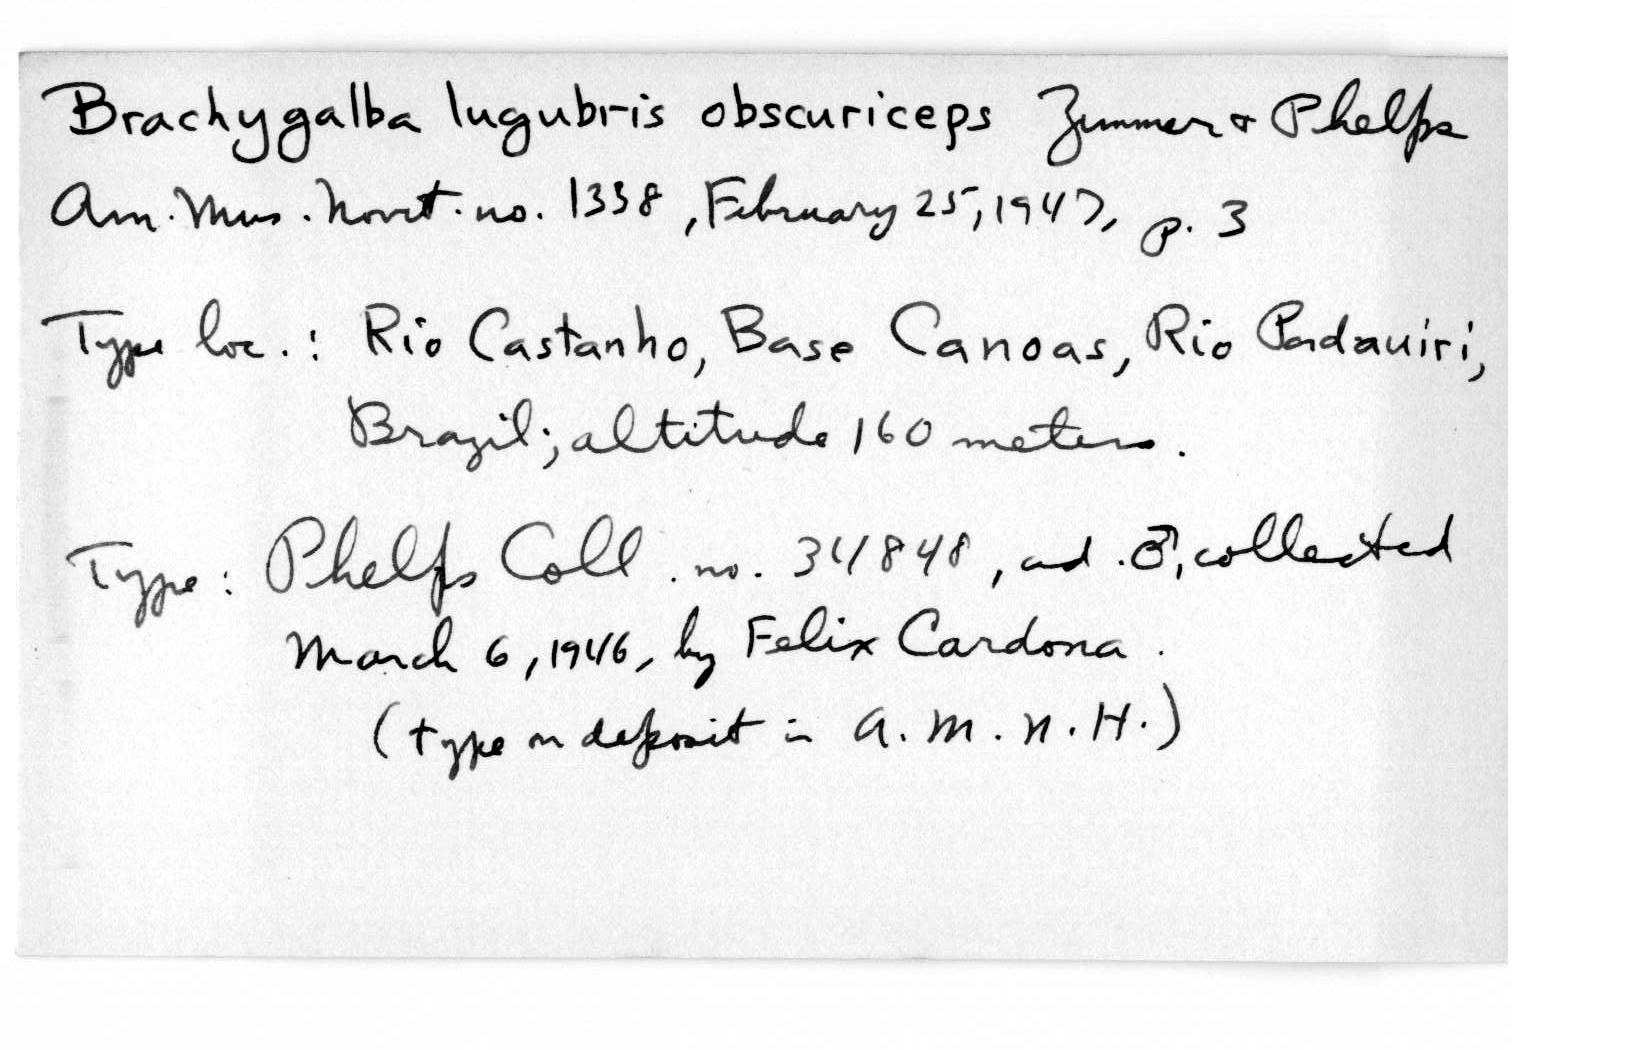 Brachygalba lugubris obscuriceps Zimmer & Phelps
Am. Mus. Novit. no. 1338, February 25, 1947, p. 3
Type loc.: Rio Castanho, Base Canoas, Rio Padauiri,
Brazil; altitude 160 meters.
Type: Phelps Coll. no. 34848, ad. ♂, collected
March 6, 1946, by Felix Cardona.
(type on deposit in A.M.N.H.)